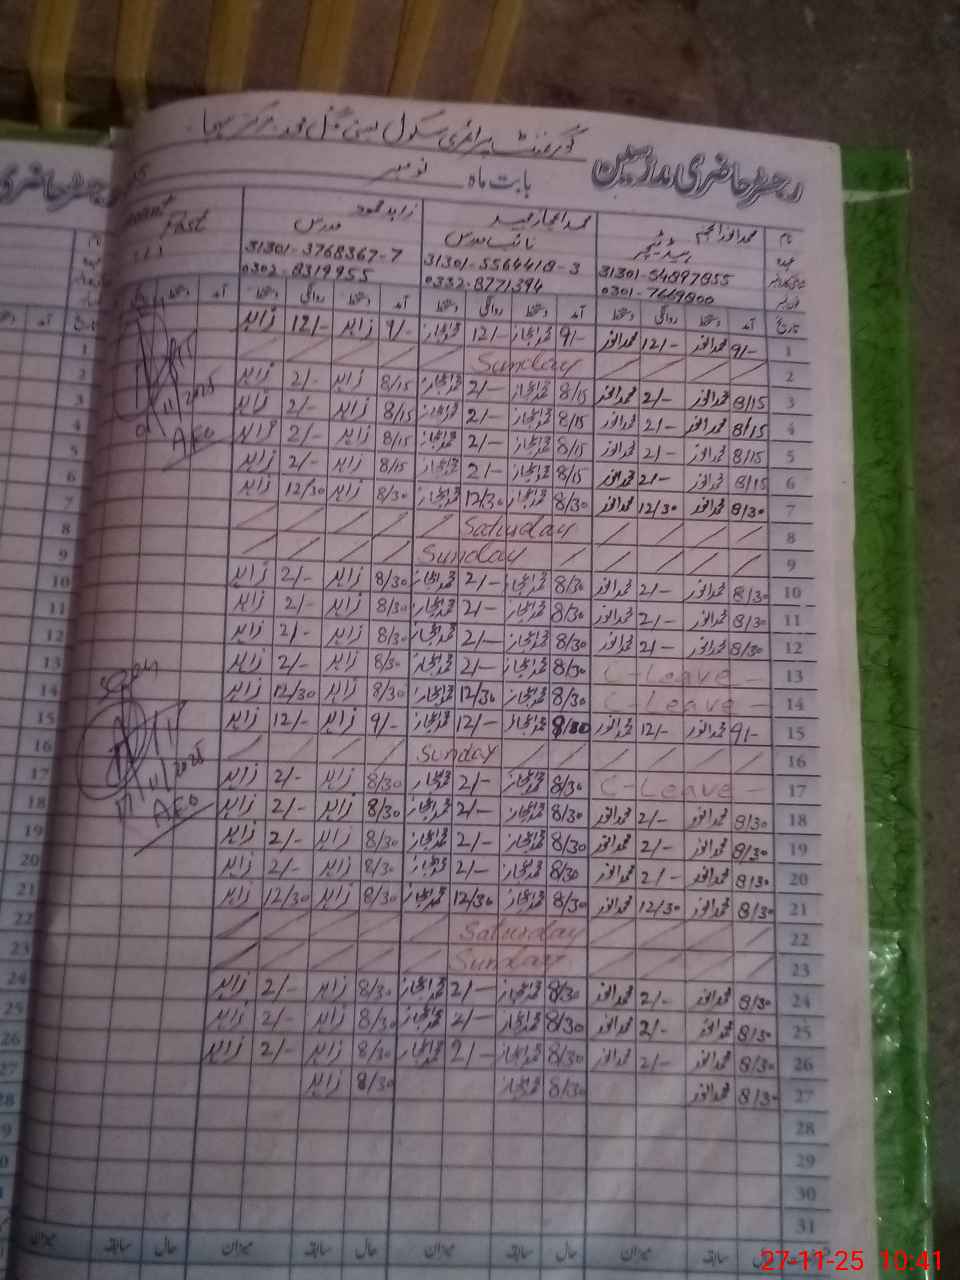 رجسٹر حاضری مدرسین
گورنمنٹ پرائمری سکول
بابت ماہ نومبر
نام محمد انور انجم محمد اعجاز سعید زاہد محمود
ہیڈ ٹیچر نائب مدرس مدرس
31301-5564418-3 31301-3768367-7
0301-7669800 0332-8771394 0302-8319955
تاریخ آمد دستخط روانگی دستخط آمد دستخط روانگی دستخط آمد دستخط روانگی دستخط آمد دستخط
1 9/- محمد انور 12/- محمد انور 9/- محمد اعجاز 12/- محمد اعجاز 9/- زاہد 12/- زاہد
2 Sunday
3 8/15 محمد انور 2/- محمد انور 8/15 محمد اعجاز 2/- محمد اعجاز 8/15 زاہد 2/- زاہد
4 8/15 محمد انور 2/- محمد انور 8/15 محمد اعجاز 2/- محمد اعجاز 8/15 زاہد 2/- زاہد
5 8/15 محمد انور 2/- محمد انور 8/15 محمد اعجاز 2/- محمد اعجاز 8/15 زاہد 2/- زاہد
6 8/15 محمد انور 2/- محمد انور 8/15 محمد اعجاز 2/- محمد اعجاز 8/15 زاہد 2/- زاہد
7 8/30 محمد انور 12/30 محمد انور 8/30 محمد اعجاز 12/30 محمد اعجاز 8/30 زاہد 12/30 زاہد
8 Saturday
9 Sunday
10 8/30 محمد انور 2/- محمد انور 8/30 محمد اعجاز 2/- محمد اعجاز 8/30 زاہد 2/- زاہد
11 8/30 محمد انور 2/- محمد انور 8/30 محمد اعجاز 2/- محمد اعجاز 8/30 زاہد 2/- زاہد
12 8/30 محمد انور 2/- محمد انور 8/30 محمد اعجاز 2/- محمد اعجاز 8/30 زاہد 2/- زاہد
13 C-Leave - 8/30 محمد اعجاز 2/- محمد اعجاز 8/30 زاہد 2/- زاہد
14 C-Leave - 8/30 محمد اعجاز 12/30 محمد اعجاز 8/30 زاہد 12/30 زاہد
15 9/- محمد انور 12/- محمد انور 8/30 محمد اعجاز 12/- محمد اعجاز 9/- زاہد 12/- زاہد
16 Sunday
17 C-Leave - 8/30 محمد اعجاز 2/- محمد اعجاز 8/30 زاہد 2/- زاہد
18 8/30 محمد انور 2/- محمد انور 8/30 محمد اعجاز 2/- محمد اعجاز 8/30 زاہد 2/- زاہد
19 8/30 محمد انور 2/- محمد انور 8/30 محمد اعجاز 2/- محمد اعجاز 8/30 زاہد 2/- زاہد
20 8/30 محمد انور 2/- محمد انور 8/30 محمد اعجاز 2/- محمد اعجاز 8/30 زاہد 2/- زاہد
21 8/30 محمد انور 12/30 محمد انور 8/30 محمد اعجاز 12/30 محمد اعجاز 8/30 زاہد 12/30 زاہد
22 Saturday
23 Sunday
24 8/30 محمد انور 2/- محمد انور 8/30 محمد اعجاز 2/- محمد اعجاز 8/30 زاہد 2/- زاہد
25 8/30 محمد انور 2/- محمد انور 8/30 محمد اعجاز 2/- محمد اعجاز 8/30 زاہد 2/- زاہد
26 8/30 محمد انور 2/- محمد انور 8/30 محمد اعجاز 2/- محمد اعجاز 8/30 زاہد 2/- زاہد
27 8/30 محمد انور 8/30 محمد اعجاز 8/30 زاہد
28
29
30
31
حال سابقہ میزان حال سابقہ میزان حال سابقہ میزان حال سابقہ میزان
AEO
AEO
27-11-25 10:41